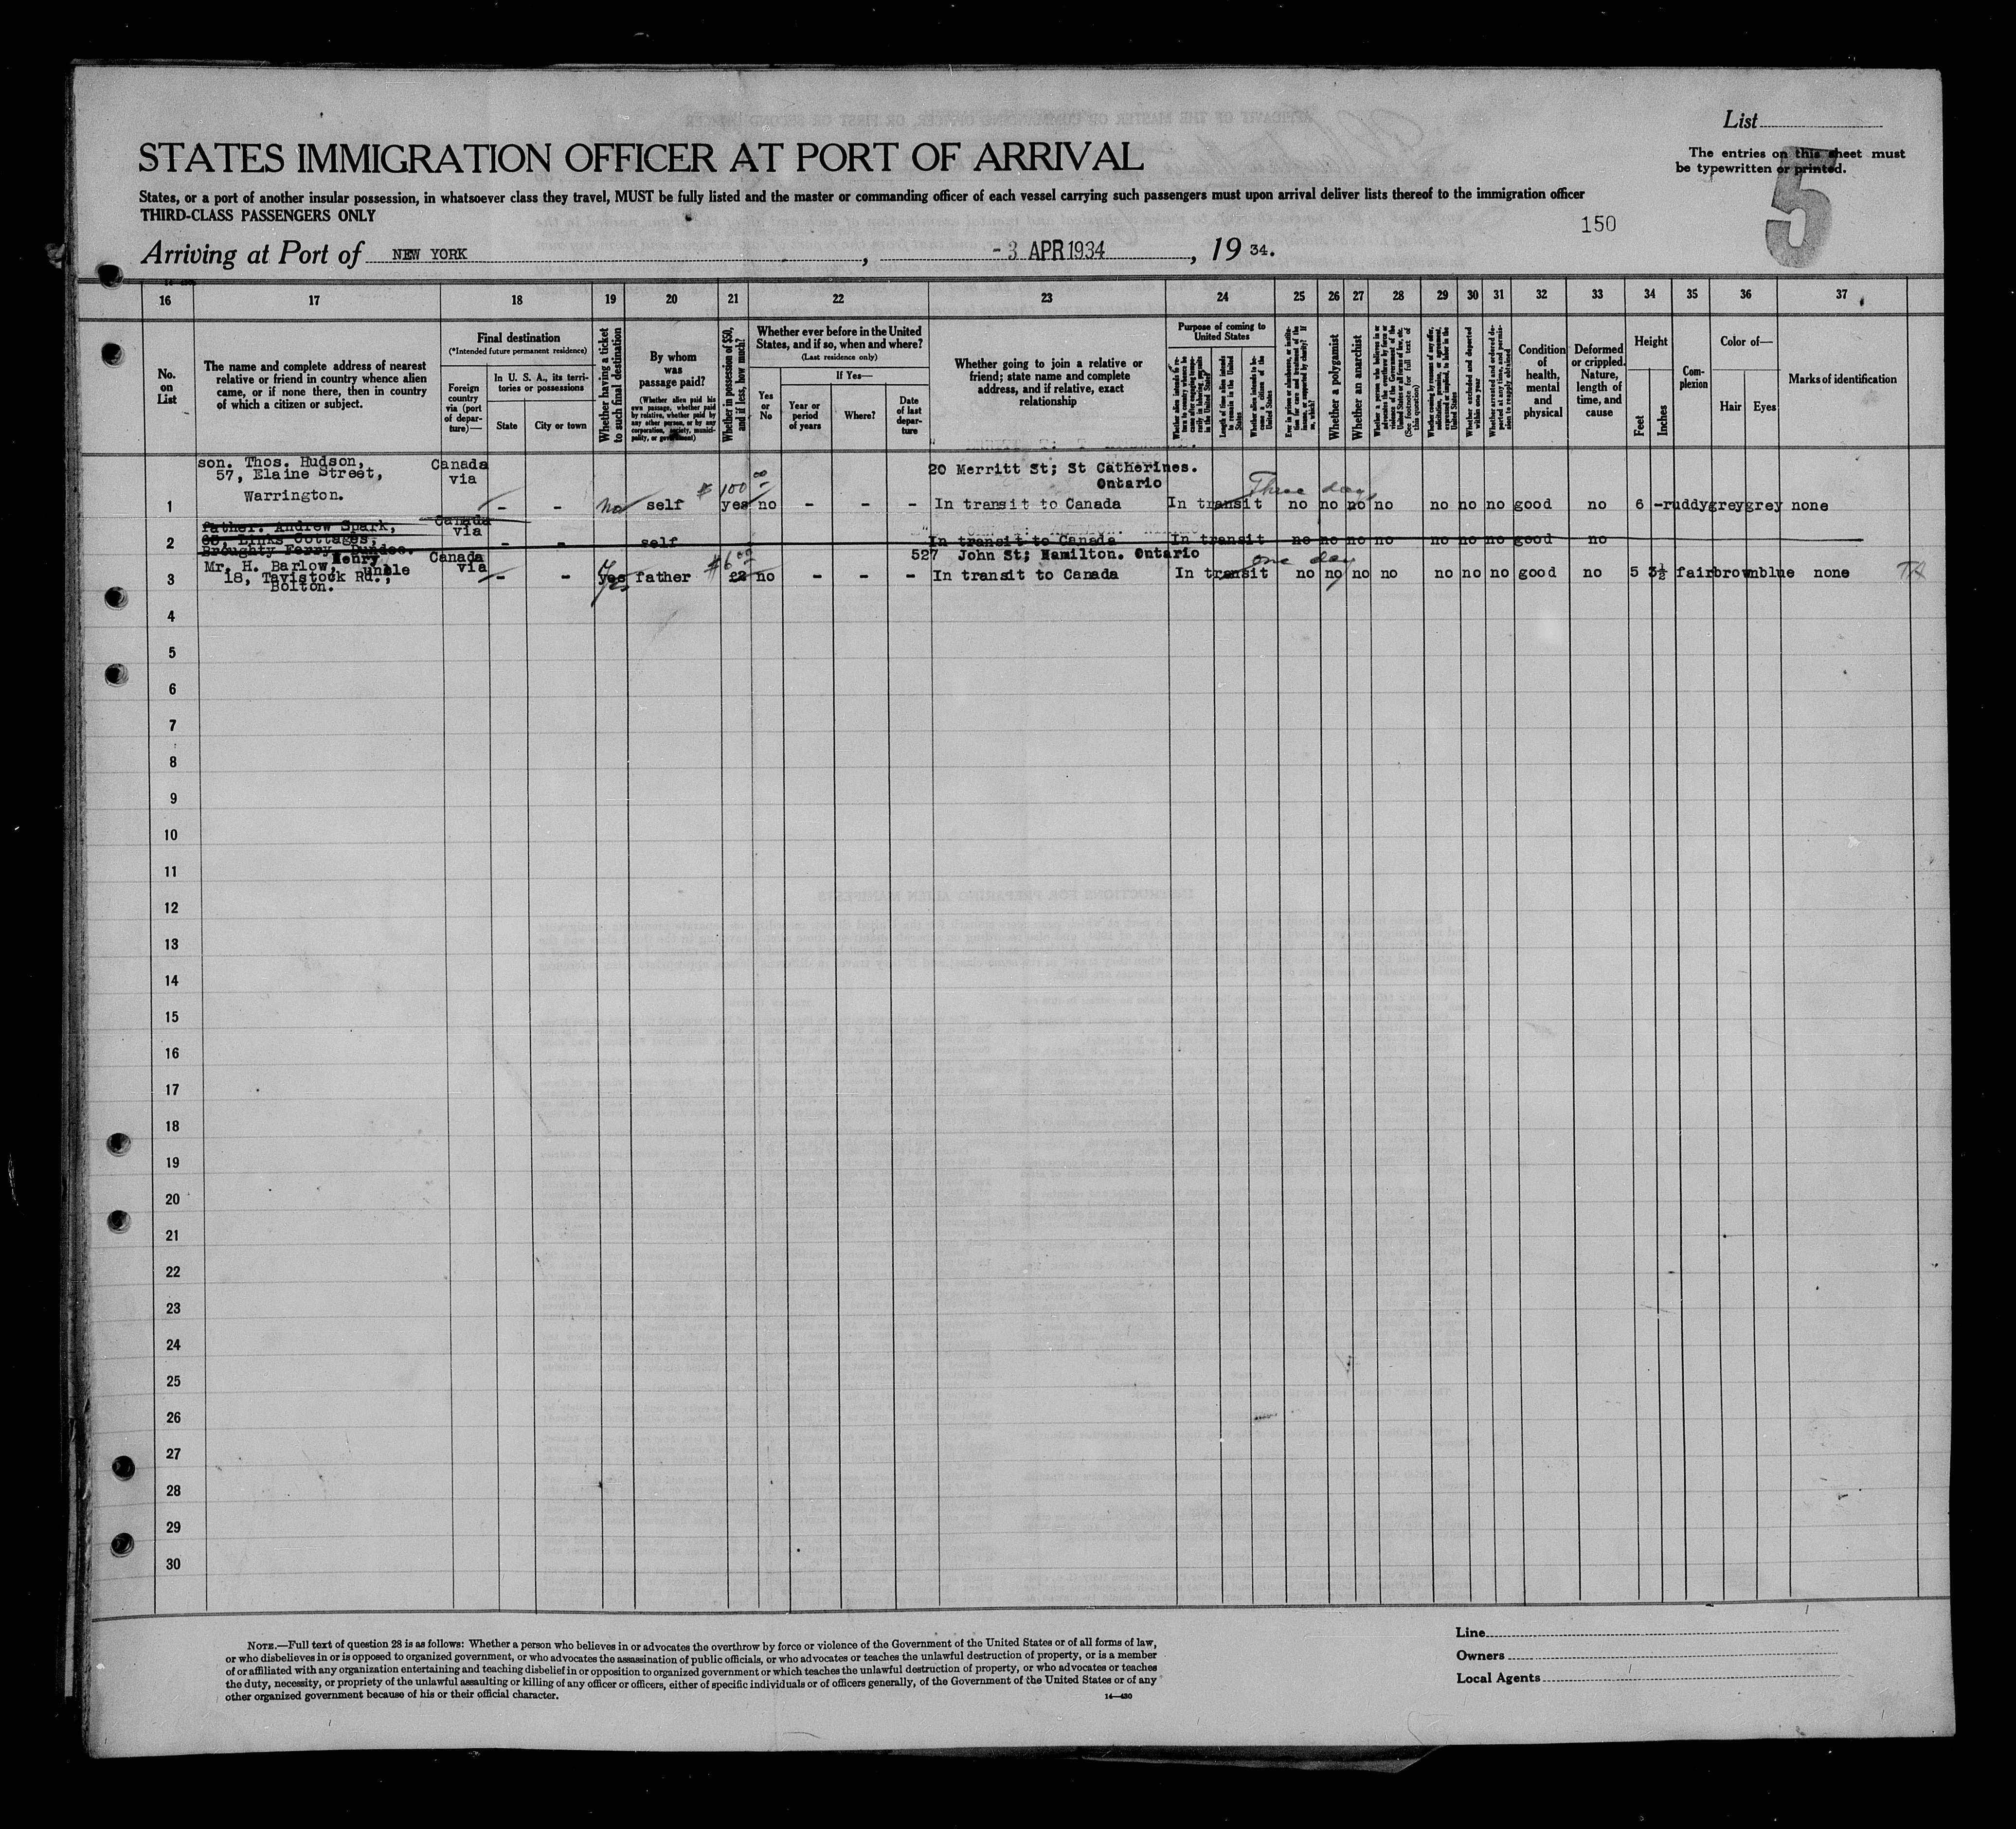 List
The entries on this sheet must
be typewritten or printed.
5
STATES IMMIGRATION OFFICER AT PORT OF ARRIVAL
States, or a port of another insular possession, in whatsoever class they travel, MUST be fully listed and the master or commanding officer of each vessel carrying such passengers must upon arrival deliver lists thereof to the immigration officer
THIRD-CLASS PASSENGERS ONLY
150
Arriving at Port of NEW YORK, -3 APR 1934, 19 34.
16 17 18 19 20 21 22 23 24 25 26 27 28 29 30 31 32 33 34 35 36 37
No. on List
The name and complete address of nearest
relative or friend in country whence alien
came, or if none there, then in country
of which a citizen or subject.
Final destination
(*Intended future permanent residence)
Foreign country via (port of departure)—
In U. S. A., its territories or possessions
State
City or town
Whether having a ticket to such final destination
By whom was passage paid?
(Whether alien paid his own passage, whether paid by relative, whether paid by any other person, or by any corporation, society, municipality, or government)
Whether in possession of $50, and if less, how much?
Whether ever before in the United
States, and if so, when and where?
(Last residence only)
Yes or No
If Yes—
Year or period of years
Where?
Date of last departure
Whether going to join a relative or
friend; state name and complete
address, and if relative, exact
relationship
Purpose of coming to United States
Whether alien intends to return to country whence he came after engaging temporarily in laboring pursuits in the United States
Length of time alien intends to remain in the United States
Whether alien intends to become a citizen of the United States
Ever in prison or almshouse, or institution for care and treatment of the insane, or supported by charity? If so, which?
Whether a polygamist
Whether an anarchist
(See footnote for full text of this question)
Whether excluded and deported within one year
Whether arrested and ordered deported at any time, and permission to reapply obtained
Condition of health, mental and physical
Deformed or crippled. Nature, length of time, and cause
Height
Feet
Inches
Complexion
Color of—
Hair
Eyes
Marks of identification
son. Thos. Hudson, Canada
57, Elaine Street, via
Warrington.
20 Merritt St; St Catherines.
Ontario
$100 00 Three days
1 - - No self yes no - - - In transit to Canada In transit no no no no no no no good no 6 - ruddy grey grey none
father. Andrew Spark, Canada
65, Links Cottages, via
Broughty Ferry, Dundee.
2 - - self In transit to Canada In transit no no no no no no no good no
Henry
Mr. H. Barlow, uncle Canada
18, Tavistock Rd., via
Bolton.
527 John St; Hamilton. Ontario
$6 00 one day
3 - - yes father £2 no - - - In transit to Canada In transit no no no no no no no good no 5 3½ fair brown blue none
Yes
4
5
6
7
8
9
10
11
12
13
14
15
16
17
18
19
20
21
22
23
24
25
26
27
28
29
30
NOTE.—Full text of question 28 is as follows: Whether a person who believes in or advocates the overthrow by force or violence of the Government of the United States or of all forms of law,
or who disbelieves in or is opposed to organized government, or who advocates the assassination of public officials, or who advocates or teaches the unlawful destruction of property, or is a member
of or affiliated with any organization entertaining and teaching disbelief in or opposition to organized government or which teaches the unlawful destruction of property, or who advocates or teaches
the duty, necessity, or propriety of the unlawful assaulting or killing of any officer or officers, either of specific individuals or of officers generally, of the Government of the United States or of any
other organized government because of his or their official character.
14—430
Line
Owners
Local Agents